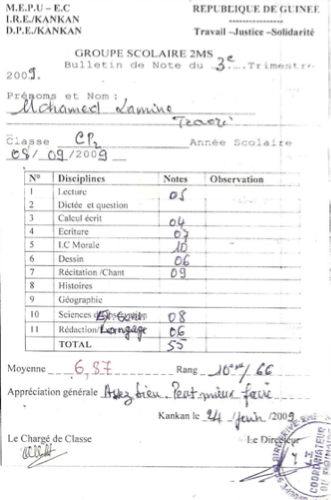 M.E.P.U - E.C REPUBLIQUE DE GUINEE
I.R.E./KANKAN
D.P.E./KANKAN Travail –Justice –Solidarité
GROUPE SCOLAIRE 2MS
Bulletin de Note du 3e Trimestre
2009.
Prénoms et Nom :
Mohamed Lamine
Traoré
Classe CP2 Année Scolaire
08/09/2009
N° Disciplines Notes Observation
1 Lecture 05
2 Dictée et question
3 Calcul écrit 04
4 Ecriture 07
5 I.C Morale 10
6 Dessin 06
7 Récitation /Chant 09
8 Histoires
9 Géographie
10 Sciences 08
11 Rédaction/Langage 06
TOTAL 55
Moyenne 6,87 Rang 10ème/66
Appréciation générale Assez bien. Peut mieux faire
Kankan le 24 /Juin/2009
Le Chargé de Classe Le Directeur
COORDINATEUR